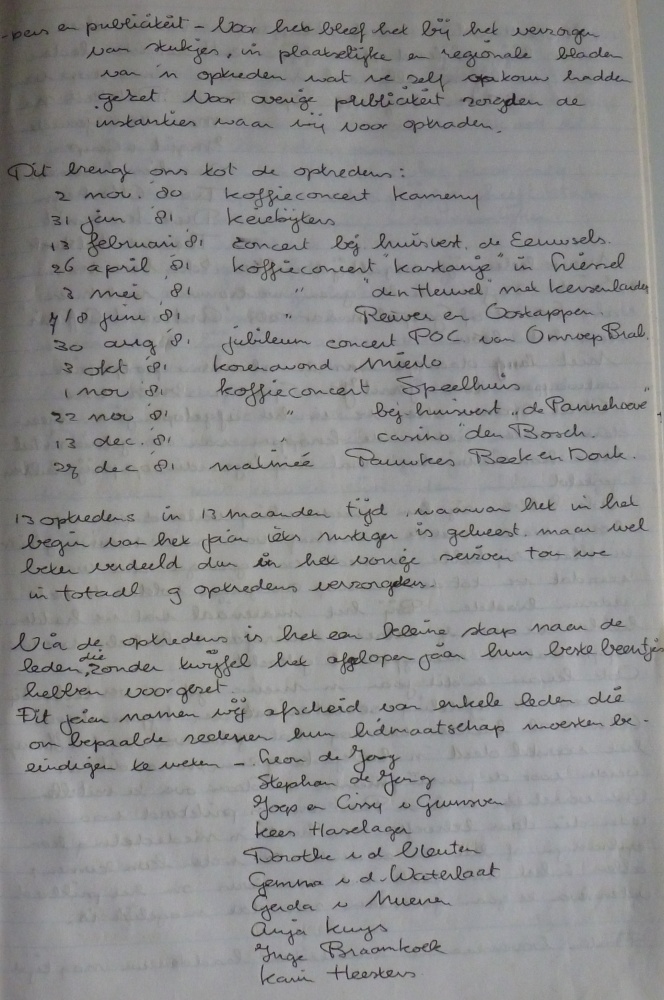 -pers en publiciteit - Voor het bleef het bij het verzorgen
van stukjes, in plaatselijke en regionale bladen
van 'n optreden wat we zelf op touw hadden
gezet. Voor overige publiciteit zorgden de
instanties waar wij voor optraden.
Dit brengt ons tot de optredens:
2 nov. '80 koffieconcert Kameny
31 jan '81 Keiebijters
13 februari '81 concert bij huisvest. de Eeuwsels.
26 april '81 koffieconcert "Kastanje" in Liessel
3 mei '81 " "den Heuvel" met Kersenlanden
7/8 juni '81 " Reuver en Oostappen.
30 aug '81 jubileum concert POC van Omroep Brab.
3 okt '81 korenavond Mierlo
1 nov '81 koffieconcert Speelhuis
22 nov '81 " bij huisvest "de Pannehoeve"
13 dec. '81 " casino "den Bosch.
27 dec '81 matinée Pauwkes Beek en Donk.
13 optredens in 13 maanden tijd, waarvan het in het
begin van het jaar iets rustiger is geweest, maar wel
beter verdeeld dan in het vorige seizoen toen we
in totaal 9 optredens verzorgden.
Via de optredens is het een kleine stap naar de
leden, die zonder twijfel het afgelopen jaar hun beste beentjes
hebben voorgezet.
Dit jaar namen wij afscheid van enkele leden die
om bepaalde redenen hun lidmaatschap moesten be-
eindigen te weten - Leon de Jong
Stephan de Jong
Joep en Cissy v Grunsven
Kees Haselager
Dorothe v d Vleuten
Gemma v d Waterlaat
Gerda v Mueren
Anja Kuys
Inge Braamkoek
Karin Heesters